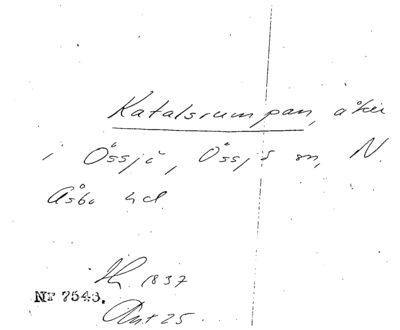 Katalsrumpan, åker
i Össjö, Össjö sn, N.
Åsbo hd
1837
Nr 7543.
Ant 25